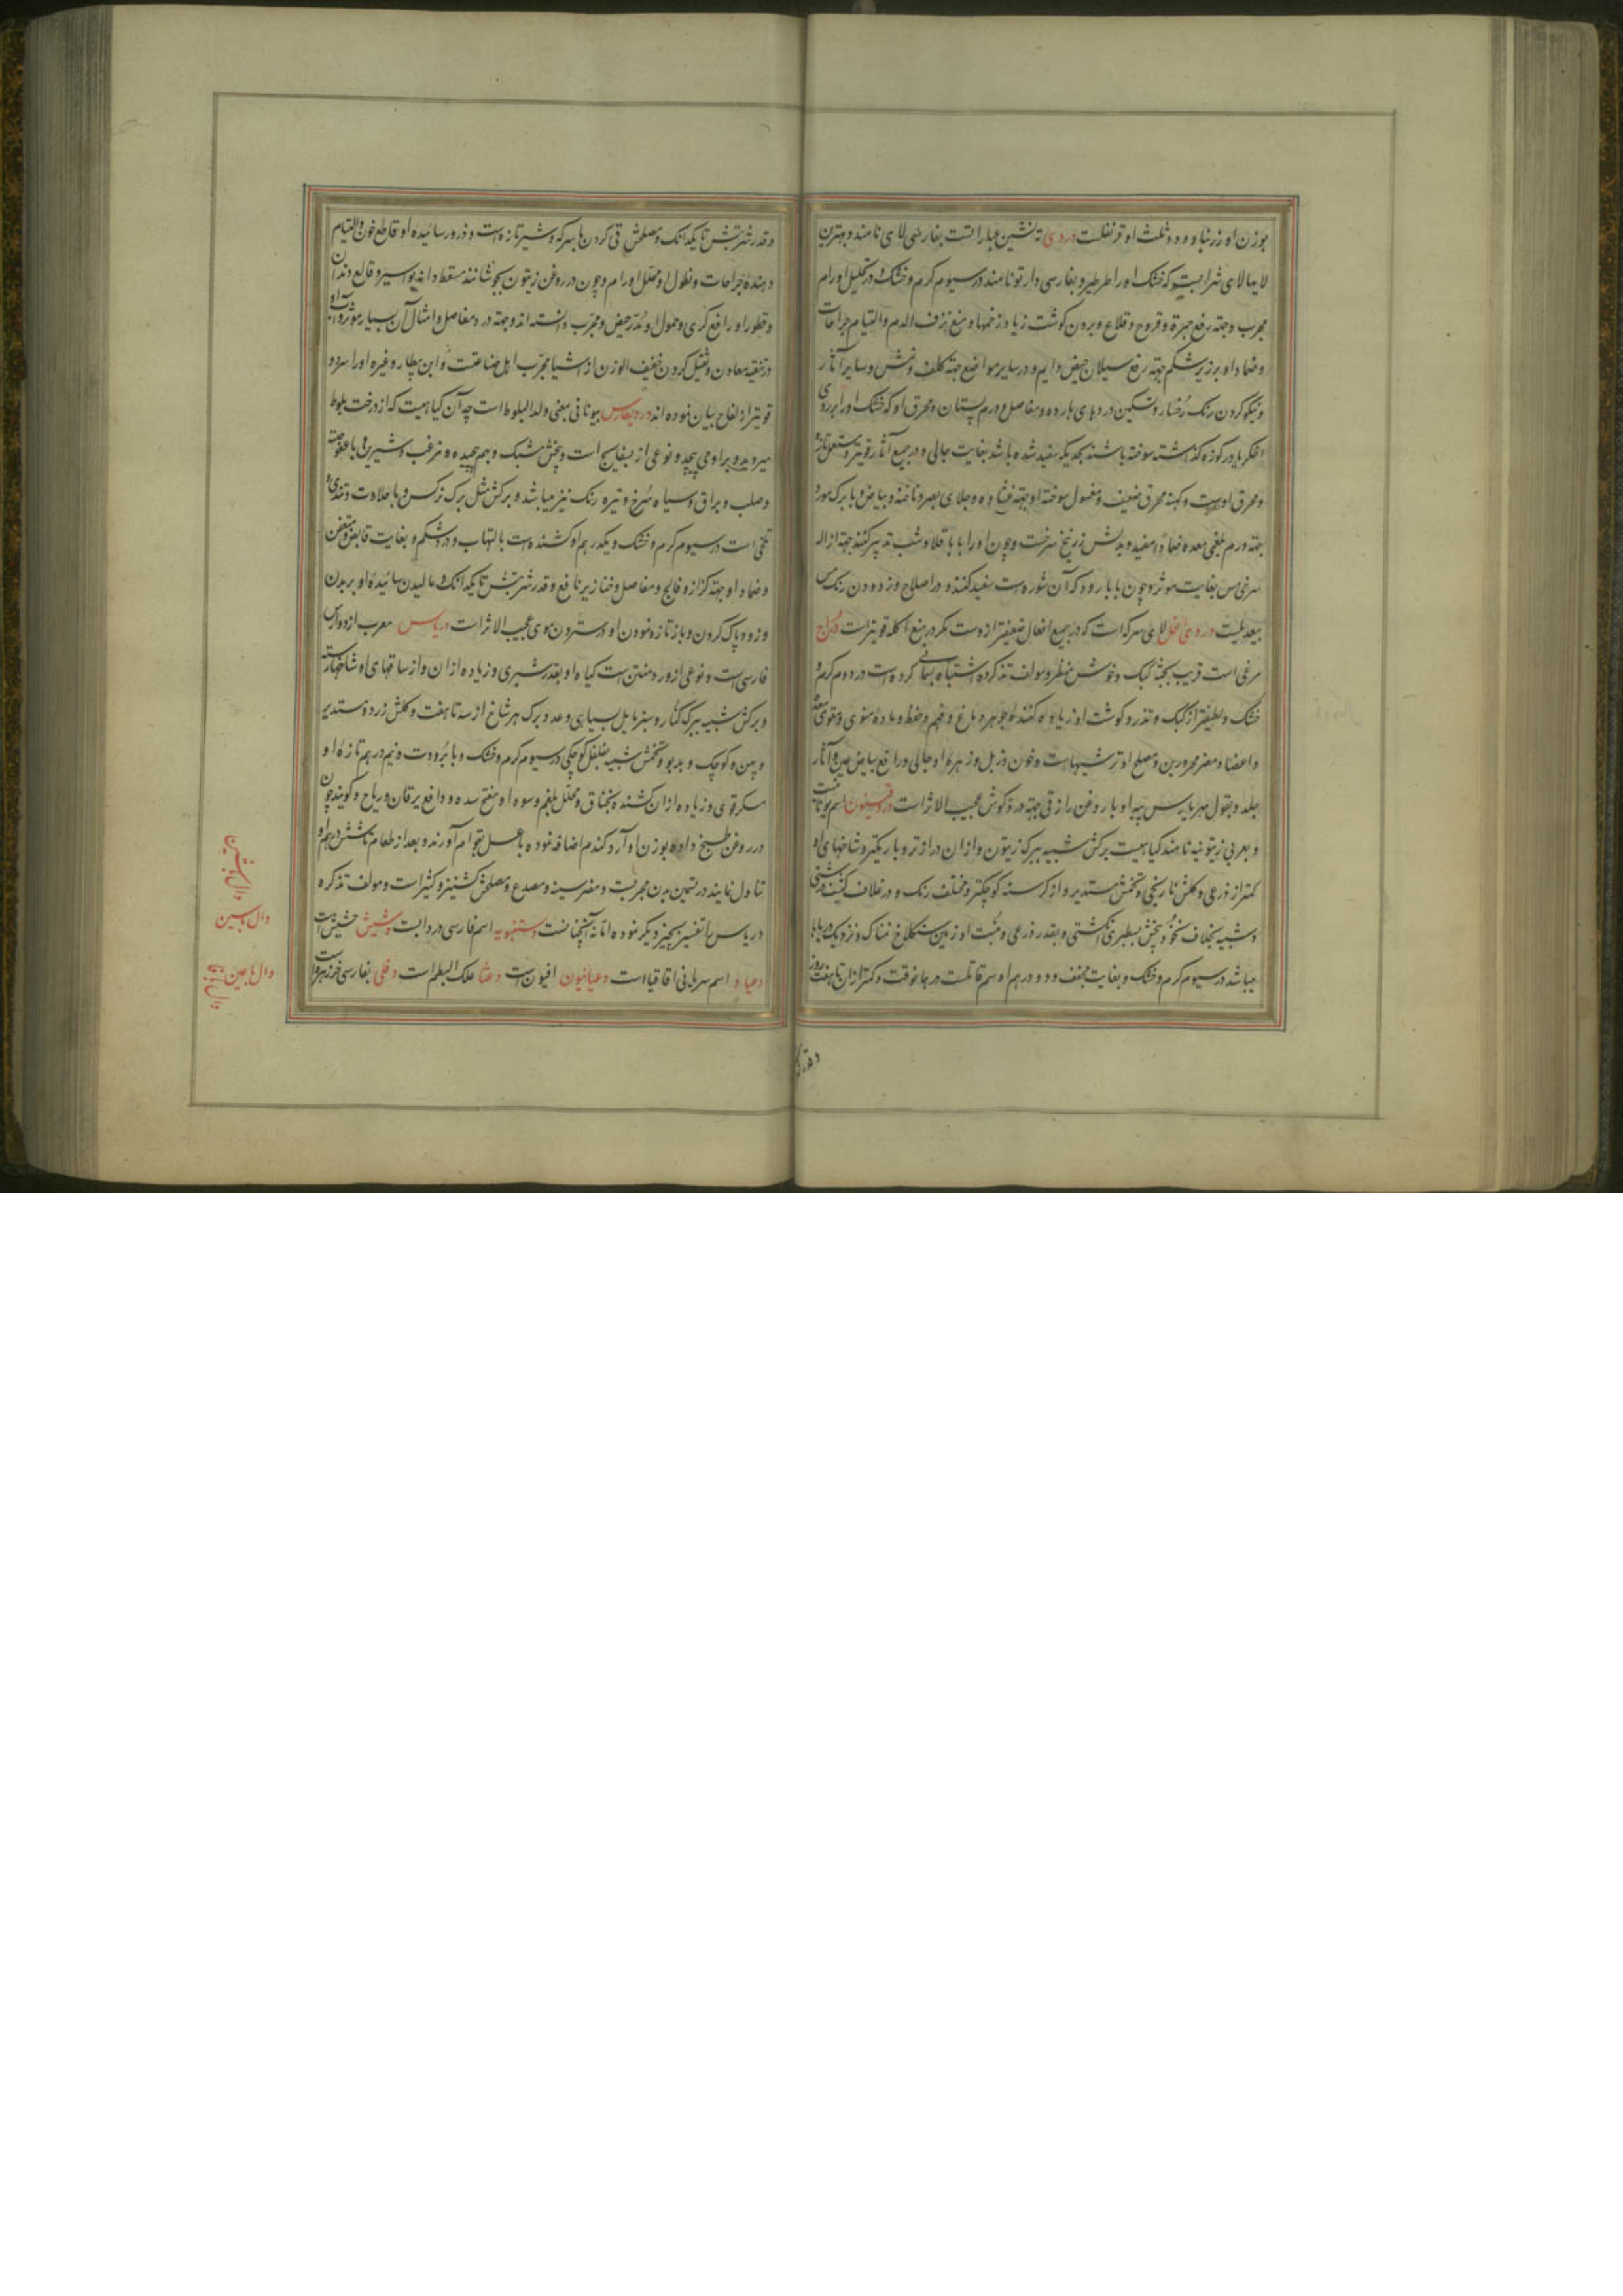 بوزن او زرنباد و دو ثلث او قرنفلست دردی ته نشین عبارتست بفارسی لای نامند و بهترین
لایهالای شرابست که خشک او را طرطیر و بفارسی دارتو نامند در سیوم کرم و خشک و در تحلیل اورام
مجرب و جهة رفع جمرة و قروح و قلاع و بردن کوشت زیاد زخمها و منع نزف الدم و التیام جراحات
و ضماد او بر زیر شکم جهة رفع سیلان حیض دایم و در سایر مواضع جهة کلف و نمش و سایر آثار
و نیکو کردن رنک رخسار و تسکین دردهای بارده و مفاصل و ورم پستان و محرق او که خشک او را بر روی
اخکر یا در کوزه کذاشته سوخته باشند بحدیکه سفید شده باشد بغایت جالی و در جمیع آثار قویتر و مستعمل تازه
و محرق اوست و کهنه محرق ضعیف و مغسول سوخته او جهة غشاوه و جلای بصر و ناخنه و بیاض و با برک مورد
جهة ورم بلغمی معده ضماداً مفید و بدلش زرنیخ سرخست و چون او را با باقلا و شب تدبیر کنند جهة ازاله
سرخی مس بغایت موثر و چون با بارود که آن شوره است سفید کنند و در اصلاح و زدودن رنک مس
بیعدیلست دردی الخل لای سرکه است که در جمیع افعال ضعیفتر ازوست مکر در منع اکله قویتر است دراج
مرغی است قریب بجثه کبک و خوش منظر و مولف تذکره اشتباه بسمانی کرده است در دوم کرم و
خشک و لطیفتر از کبک و تذرو و کوشت او زیاده کننده جوهر دماغ و فهم و حفظ و ماده منوی و مقوی معده
و اعضا و مضر محرورین و مصلح او ترشیهاست و خون و زبل و زهره او جالی و رافع بیاض عین و آثار
جلد و بقول مهریارس پیه او با روغن رازقی جهة درد کوش عجیب الاثر است دروقینون اسم یونانیست
و بعربی زیتونیه نامند کیاهیست برکش شبیه ببرک زیتون و ازان درازتر و باریکتر و شاخهای او
کمتر از ذرعی و کلش نارنجی و تخمش مستدیر و از کرسنه کوچکتر و مختلف رنک و در غلاف کثیف درشتی
و شبیه بغلاف نخود و بیخش بسطبری انکشتی و بقدر ذرعی و منبت او زمین سنکلاخ نمناک و نزدیک دریاها
میباشد در سیوم کرم و خشک و بغایت مجفف و دو درهم او سم قاتلست در همانوقت و کمتر ازان تا هفت روز
و قدر
و قدر شربتش تا یکدانک و مصلحش قی کردن با سرکه و شیر تازه است و ذرور سائیده او قاطع خون و التیام
دهنده جراحات و نطول او محلل اورام و چون در روغن زیتون بجوشانند مسقط دانه بواسیر و قالع دندان
و قطور او رافع کری و حمول او مدر حیض و مجرب دانسته اند و جهة درد مفاصل و امثال آن بسیار موثر و آب او
در تنقیه معادن و ثقیل کردن خفیف الوزن از اشیا مجرب اهل صناعتست و ابن بیطار و غیره او را سرد و
قویتر از لفاح بیان نموده اند دروبطارس بیونانی بمعنی ولد البلوط است چه آن کیاهیست که از درخت بلوط
میروید و براو می پیچد و نوعی از بسفایج است و بیخش مشبک و بهم پیچیده و مزغب و شیرین با عفوصة
و صلب و براق و سیاه و سرخ و تیره رنک نیز میباشد و برکش مثل برک نرکس و با حلاوت و تندی و
تلخی است در سیوم کرم و خشک و یکدرهم او کشنده است بالتهاب و درد شکم و بغایت قابض و متعفن
و ضماد او جهة کزاز و فالج و مفاصل و خنازیر نافع و قدر شربتش تا یکدانک و مالیدن سائیده او بر بدن
و زود پاک کردن و باز تازه نمودن او در ستردن موی عجیب الاثر است دریاس معرب از دوراس
فارسی است و نوعی از ورد منتن است کیاه او بقدر شبری و زیاده ازان و از ساقهای او شاخها رسته
و برکش شبیه ببرک کنار و سبز مایل بسیاهی و عدد برک هر شاخ از سه تا هفت و کلش زرد و مستدیر
و پهن و کوچک و بدبو و تخمش شبیه بفلفل کوچکی در سیوم کرم و خشک و با برودت و نیم درهم تازه او
مسکر قوی و زیاده ازان کشنده بخناق و محلل بلغم و سودا و مفتح سده و دافع یرقان و ریاح و کویند چون
در روغن طبخ داده بوزن او آرد کندم اضافه نموده با عسل بقوام آورند و بعد از طعام تا شش درهم او
تناول نمایند در تسمین بدن مجربست و مضر سینه و مصدع و مصلحش کشنیز و کثیراست و مولف تذکره
دریاس را تفسیر بچیز دیکر نموده اما نه آنچنانست دستنبویه اسم فارسی دردابست دشیش حشیش است
دعیاد اسم سریانی اقاقیا است دعیانیون افیونست دغتا علک البطم است دفلی بفارسی خرزهره است
دال با شین
دال با سین
دال با عین
دال با فا